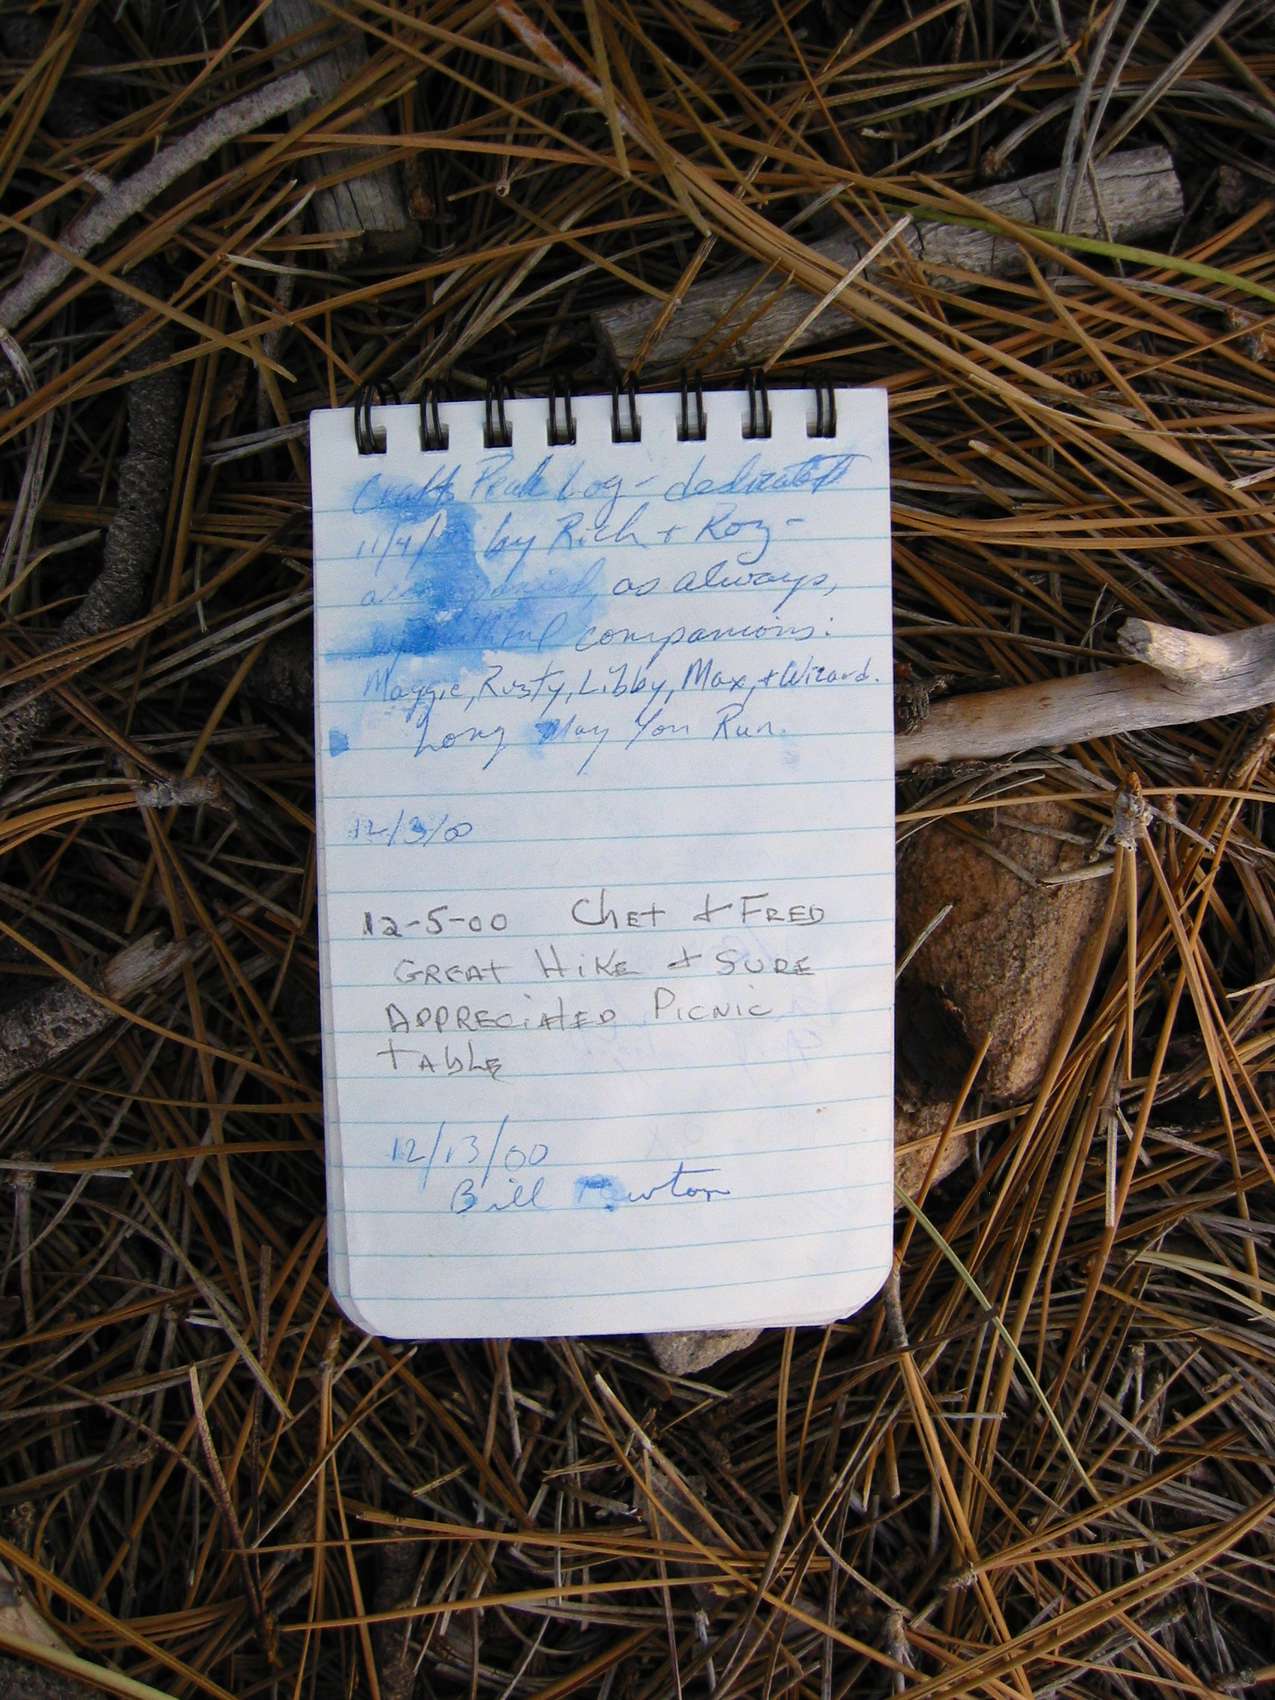 Crafts Peak Log - dedicated
11/4/ by Rich + Roz -
as always,
companions:
Maggie, Rusty, Libby, Max, + Wizard.
Long May You Run.
12/3/00
12-5-00 Chet + FRED
GREAT HIKE + SURE
APPRECIATED PICNIC
TABLE
12/13/00
Bill Newton